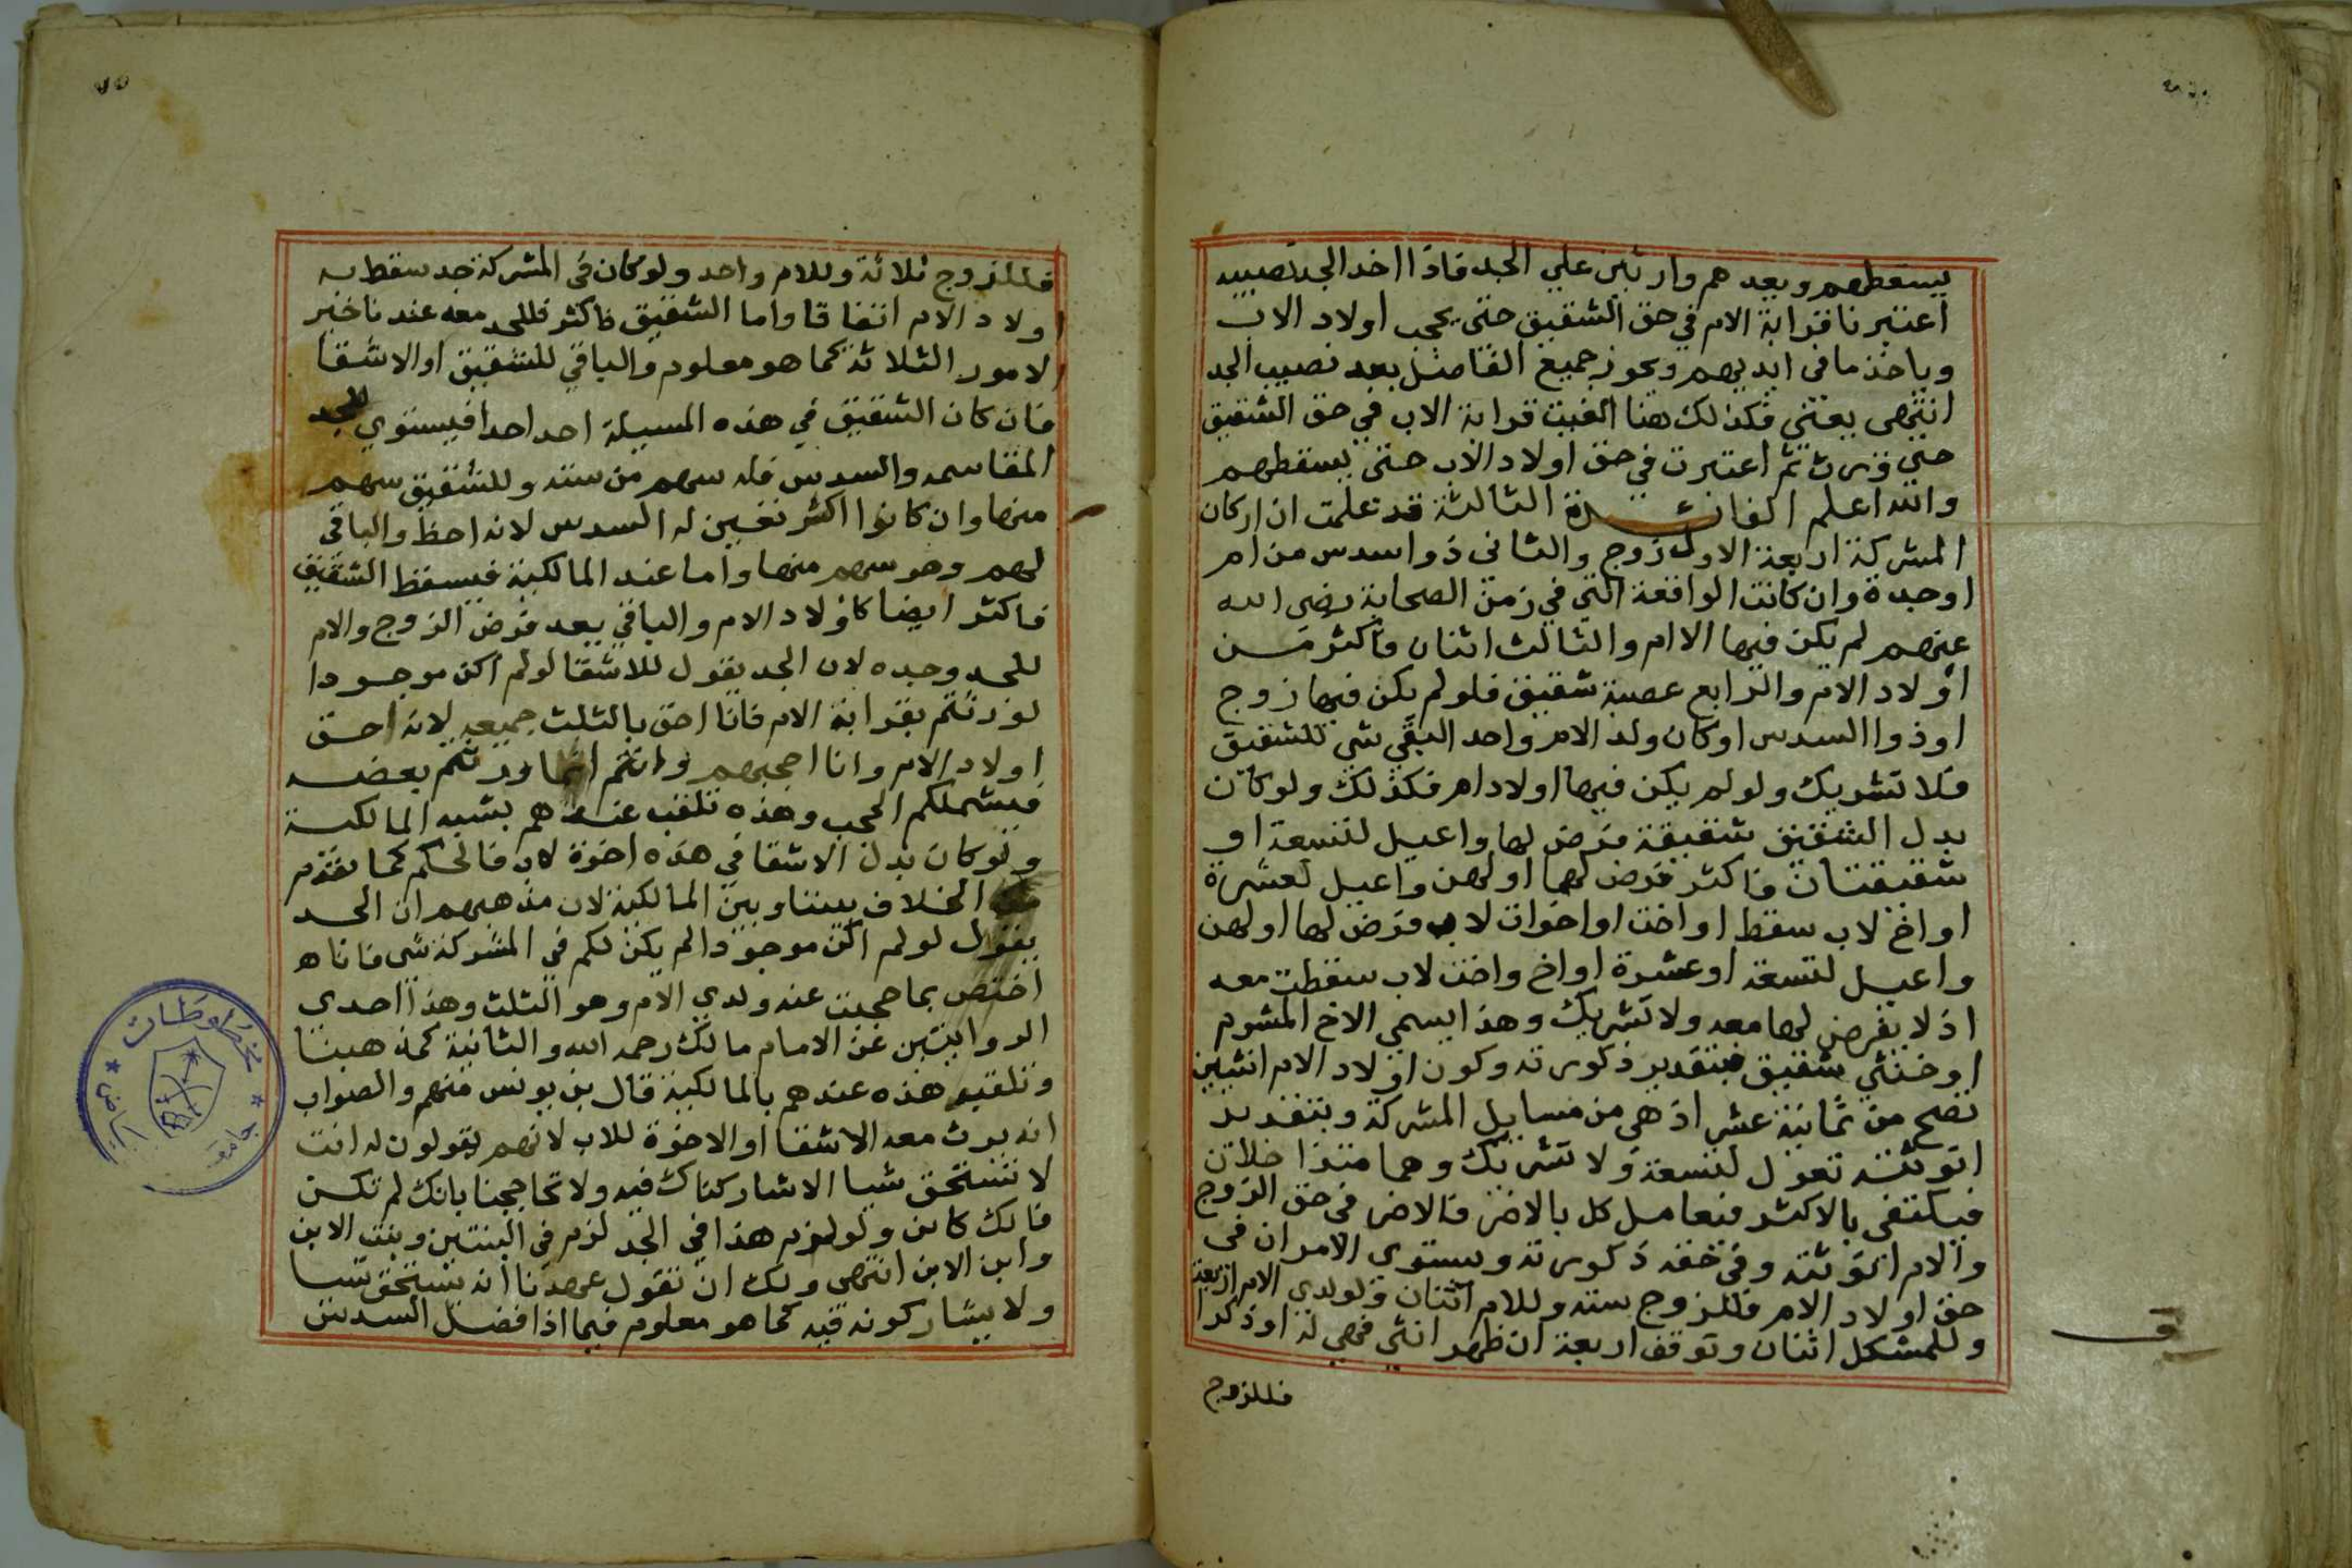 يسقطهم ويعدهم وارثين علي الجد فاذا اخد الجد نصيبه
اعتبرنا قرابة الام في حق الشقيق حتي يحجب اولاد الاب
وياخذ ما في ايديهم ويحوز جميع الفاضل بعد نصيب الجد
انتهى يعني فكذلك هنا الغيت قرابة الاب في حق الشقيق
حتي ورث ثم اعتبرت في حق اولاد الاب حتي يسقطهم
والله اعلم الفائدة الثالثة قد علمت ان اركان
المشركة اربعة الاول زوج والثاني ذو اسدس من ام
او جدة وان كانت الواقعة التي في زمن الصحابة رضى الله
عنهم لم يكن فيها الا ام والثالث اثنان فاكثر من
اولاد الام والرابع عصبة شقيق فلو لم يكن فيها زوج
او ذوا السدس او كان ولد الام واحد البقي شي للشقيق
فلا تشريك ولو لم يكن فيها اولاد ام فكذلك ولو كان
بدل الشقيق شقيقة فرض لها واعيل لتسعة او
شقيقتان فاكثر فرض لهما او لهن واعيل لعشرة
او اخ لاب سقط او اخت او اخوات لاب فرض لها او لهن
واعيل لتسعة او عشرة او اخ واخت لاب سقطت معه
اذ لا يفرض لها معه ولا تشريك وهذا يسمي الاخ المشوم
او خنثي شقيق فبتقدير ذكورته وكون اولاد الام انثيين
تصح من ثمانية عشر اذ هي من مسايل المشركة وبتقدير
انوثته تعول لتسعة ولا تشريك وهما متداخلان
فيكتفي بالاكثر فيعامل كل بالاضر فالاضر في حق الزوج
والام انوثته وفي حقه ذكورته ويستوي الامران في
حق اولاد الام فللزوج ستة وللام اثنان ولولدي الام اربعة
وللمشكل اثنان وتوقف اربعة ان ظهر انثي فهي له او ذكرا
فللزوج
فللزوج ثلاثة وللام واحد ولو كان في المشركة جد سقط به
اولاد الام اتفاقا واما الشقيق فاكثر فللجد معه عندنا خير
الامور الثلاثة كما هو معلوم والباقي للشقيق او الاشقا
فان كان الشقيق في هذه المسيلة احد احدا فيستوي للجد
المقاسمه والسدس فله سهم من سته وللشقيق سهم
منها وان كانوا اكثر تعين له السدس لانه احظ والباقي
لهم وهو سهم منها واما عند المالكية فيسقط الشقيق
فاكثر ايضا كاولاد الام والباقي بعد فرض الزوج والام
للجد وحده لان الجد يقول للاشقا لو لم اكن موجودا
لورثتم بقرابة الام فانا احق بالثلث جميعه لانه احق
اولاد الام وانا احجبهم وانتم انما ورثتم بعضه
فيشملكم الحجب وهذه تلقب عندهم بشبه المالكية
ولو كان بدل الاشقا في هذه اخوة لاب فالحكم كما تقدم
الخلاف بيننا وبين المالكية لان مذهبهم ان الجد
يقول لو لم اكن موجودا لم يكن لكم في المشركة شى فانا
اختص بما حجبت عنه ولدي الام وهو الثلث وهذا احدى
الروايتين عن الامام مالك رحمه الله والثانية كمذهبنا
وتلقب هذه عندهم بالمالكية قال بن يونس منهم والصواب
انه يرث معه الاشقا او الاخوة للاب لانهم يقولون له انت
لا تستحق شيا الا شاركناك فيه ولا تحاججنا بانك لم تكن
فانك كاين ولو لزم هذا في الجد لزم في البنتين وبنت الابن
وابن الابن انتهى ولك ان تقول عهدنا انه يستحق شيا
ولا يشاركونه فيه كما هو معلوم فيما اذا فضل السدس